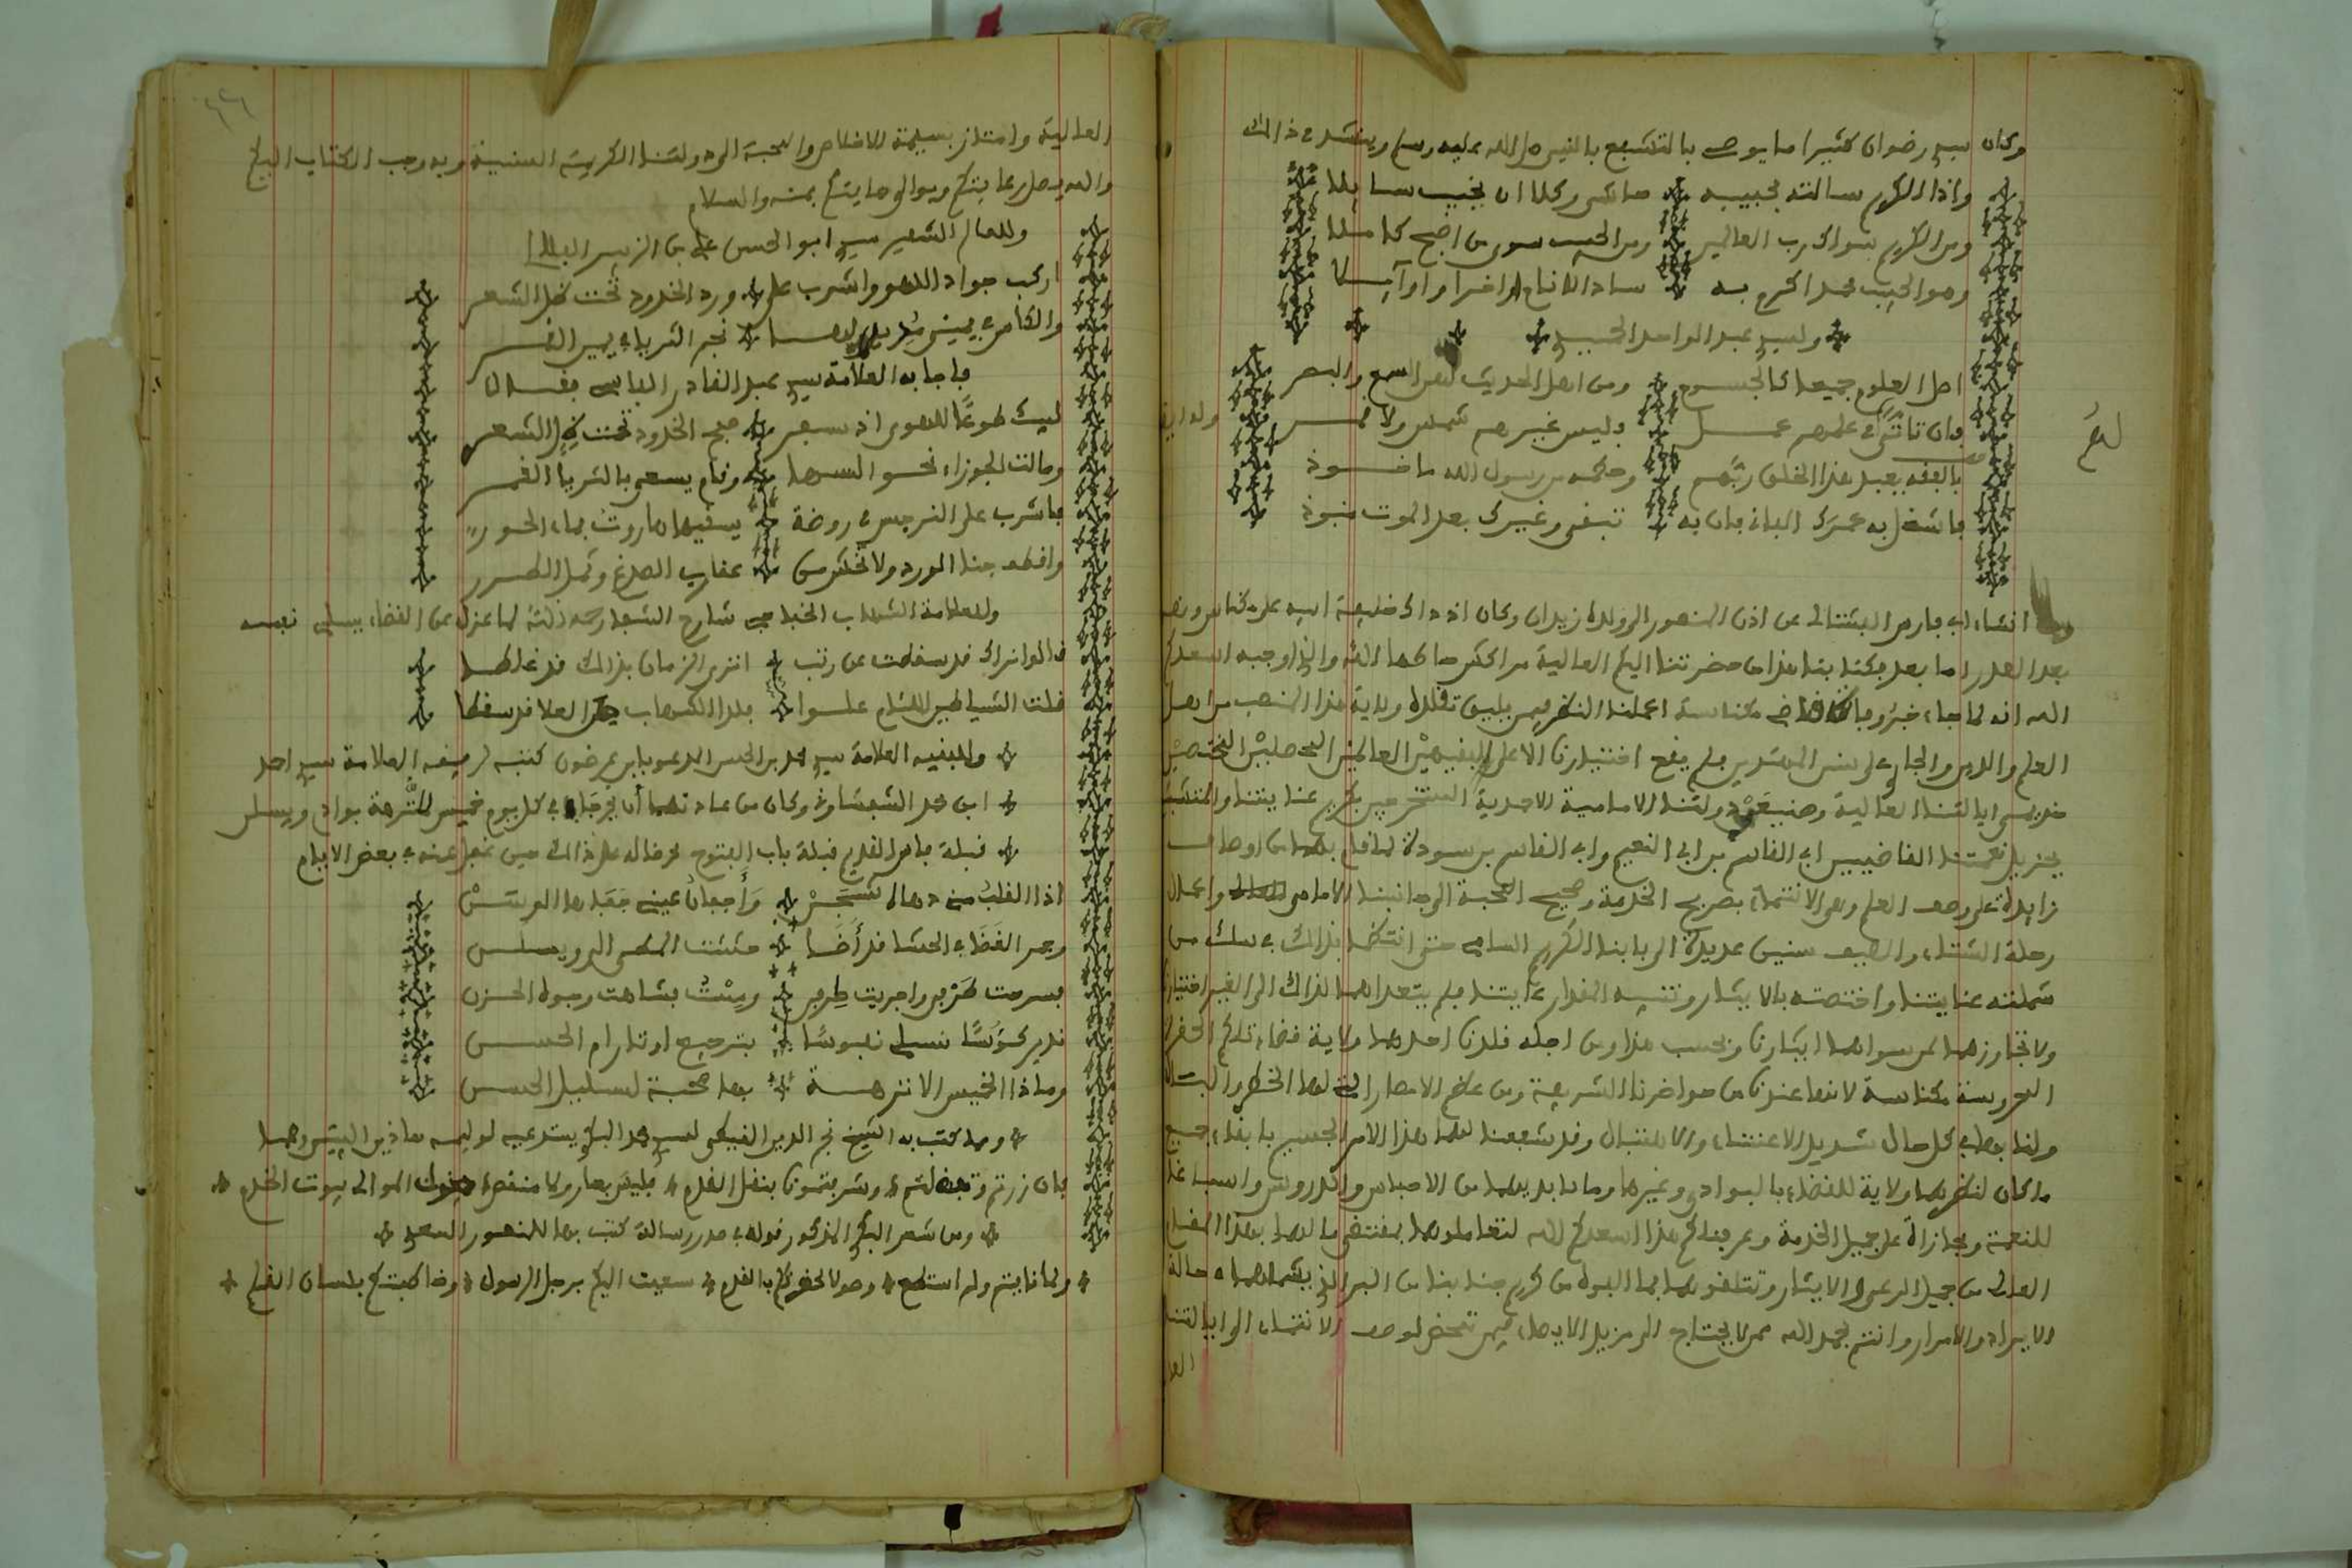 وكان سيدي رضوان كثيرا ما يوصي بالتشبع بالنبي صلى الله عليه وسلم وينشد في ذالك
واذا الكريم سالته بحبيبه حاشى وكلا ان يخيب سايلا
ومن الكريم سواك رب العالمين ومن الحبيب سوى من اضحى كاملا
وهو الحبيب محمد اكرم به ساد الانام اواخرا واوايلا
ولسيدي عبد الواحد الحميدي
اصل العلوم جميعا كالجسوم ومن اهل الحديث لهن السمع والبصر
وان تاتى في علمهم عمل وليس غيرهم شمس ولا قمر
وله ايضا
بالفقه يعبد هذا الخلق ربهم وحكمه من رسول الله ماخوذ
فاشغل به عمرك الفاني فان به تبقى وغيرك بعد الموت منبوذ
انشاء ابي فارس الفشتالي عن اذن المنصور الى ولده زيدان وكان اذ ذاك خليفة ابيه على مكناس ونصه
بعد الصدر اما بعد فكتابنا هذا من حضرتنا اليكم العالية مراكش حاطها الله والذي اوجبه اسعدكم
الله انه لما جاء خبر وفاة قاضي مكناسة اعملنا النظر فيمن يليق تقلده ولاية هذا المنصب من اهل
العلم والدين والجاري على سنن المهتدين فلم يقع اختيارنا الا على الفقيهين العالمين المحصلين المختصين
بجزيل نعمتنا القاضيين ابي القاسم بن ابي النعيم وابي القاسم بن سودة لما قام بهما من اوصاف
زايدة على وصف العلم وهي الانتماء بصريح الخدمة وصحيح المحبة الى جانبنا الامامي واعمال
رحلة الشتاء والصيف سنين عديدة الى بابنا الكريم السامي حتى انتظما بذالك في سلك من
شملته عنايتنا واختصته بالايثار وتنبيه المقدار رعايتنا فلم يتعداهما لذاك الى الغير اختيارنا
ولا تجاوزهما لمن سواهما ايثارنا وبحسب هذا ومن اجله قلدنا احدهما ولاية قضاء تلكم الحضرة
المحروسة مكناسة لانها عندنا من حواضرنا الشريفة ومن عظم الامصار التي لها الخطر والبال
ولنا بها في كل حال شديد الاعتناء والاهتبال وقد شفعنا لهما هذا الامر الجسيم بابقاء جميع
ما كان لنظرهما ولاية للقضاء بالبوادي وغيرها وما بايديهما من الاحباس والدروس واسباغا
للنعمة ومجازاة على جميل الخدمة وعرفناكم هذا اسعدكم الله لتعاملوهما بمقتضى ما لهما بهذا المقام
العالي من جميل الرعي والايثار وتتلقوهما بما الفوه من كريم جنابنا من البر الذي يشملهما في حالة
الايراد والاصدار وانتم بحمد الله ممن لا يحتاج الى مزيد الايصاء فيمن تمحض لوصف الانتماء الى ايالتنا
العا
العالية وامتاز بسيمة الاخلاص والمحبة الى دولتنا الكريمة السنية وبه وجب الكتاب اليكم
والله يصل رعايتكم ويوالي حمايتكم بمنه والسلام
وللعالم الشهير سيدي ابو الحسن علي بن الزبير
اركب جواد اللهو واشرب على ورد الخدود تحت ظل الشعر
والكاس في يمين مديريها نجم الثريا في يمين القمر
فاجابه العلامة سيدي عبد القادر الفاسي فقال
لبيك طوعا للهوى اذ سعى صبح الخدود تحت ليل الشعر
ومالت الجوزاء نحو السها وقام يسعى بالثريا القمر
فاشرب على النرجس في روضة يسقيها هاروت بماء الحور
واقطف جنا الورد ولا تخش من عقارب الصدغ ونمل الطرر
وللعلامة الشهاب الخفاجي شارح الشفا رحمه الله لما عزل عن القضاء يسلي نفسه
قالوا نراك قد سقطت عن رتب اترى الزمان بذالك قد غلطا
قلت الشياطين للئام علوا فلذا الشهاب من العلا قد سقطا
وللفقيه العلامة سيدي محمد بن الحسن المدعو بابن عرضون كتبه لرفيقه العلامة سيدي احمد
ابن محمد الشفشاوني وكان من عادتهما ان يخرجا في كل يوم خميس للنزهة بوادي ويسلن
قبلة فاس القديم قبالة باب الفتوح فخرقا له على ذالك حين غفل عنه في بعض الايام
اذا القلب مني دهاه شجن واجفان عيني جفاها الوسن
وجمر الغضا في الحشا قد اضا حثثت المطي الى ويسلن
فسرحت طرفي واجريت طرفي وبنت فشاهت وجوه الحزن
ندير كؤسا نسلي نفوسا بترجيع اوتار ام الحسن
وما ذا الخميس الا نزهة بها صحبة لسليل الحسن
ومما كتب به الشيخ نجم الدين الفيكي لسيدي محمد البكري يستدعيه لوليمه هاذين البيتين وهما
فان زرتم وتفضلتم وشرفتمونا بنقل القدم فليس بعار ولا منقص دخول الموالي بيوت الخدم
ومن شعر البكري المذكور قوله في صدر رسالة كتب بها للمنصور السعدي
ولما نايتم ولم استطع وصولا لحضرتكم بالقدم سعيت اليكم برجل الرسول وخاطبتكم بلسان القلم